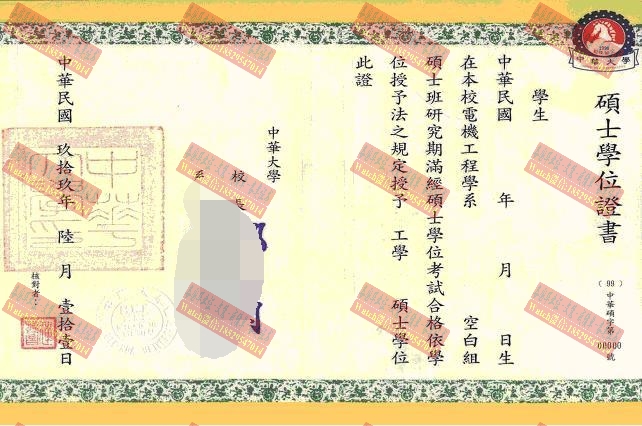 中華大學
碩士學位證書
（99）中華碩字第00000號
學生
中華民國 年 月 日生
在本校電機工程學系 空白組
碩士班研究期滿經碩士學位考試合格依學
位授予法之規定授予 工學 碩士學位
此證
中華大學
校長
系
中華民國 玖拾玖年 陸月 壹拾壹日
核對者：